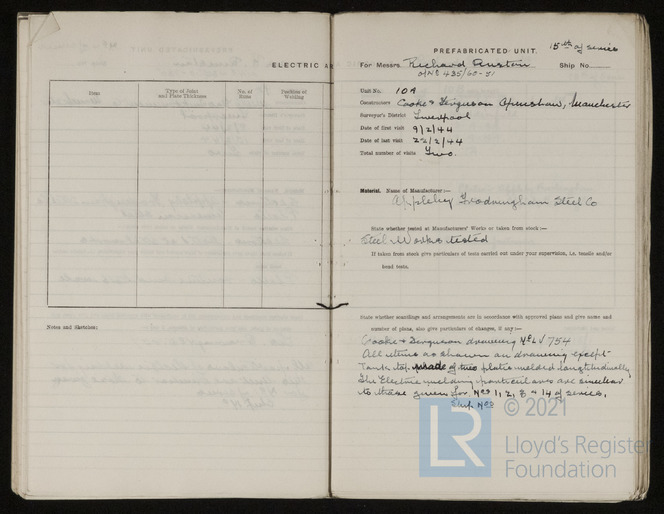 ELECTRIC AR
Item
Type of Joint and Plate Thickness
No. of Runs
Position of Welding
Notes and Sketches:
15th of series
PREFABRICATED UNIT.
For Messrs Richard Austin Ship No
O/No 435/60-51
Unit No. 10A
Constructors Cooke & Ferguson Openshaw, Manchester
Surveyor's District Liverpool
Date of first visit 9/2/44
Date of last visit 22/2/44
Total number of visits Two.
Material. Name of Manufacturer:—
Appleby Frodingham Steel Co
State whether tested at Manufacturers' Works or taken from stock:—
Steel Works tested
If taken from stock give particulars of tests carried out under your supervision, i.e. tensile and/or
bend tests.
State whether scantlings and arrangements are in accordance with approved plans and give name and
number of plans, also give particulars of changes, if any:—
Cooke & Ferguson drawing No LV 754
All items as shown on drawing except
Tank top made of two plates welded longitudinally
The Electric welding particulars are similar
to those given for Nos 1, 2, 8 & 14 of series,
Ship Nos
© 2021
LR
Lloyd's Register
Foundation